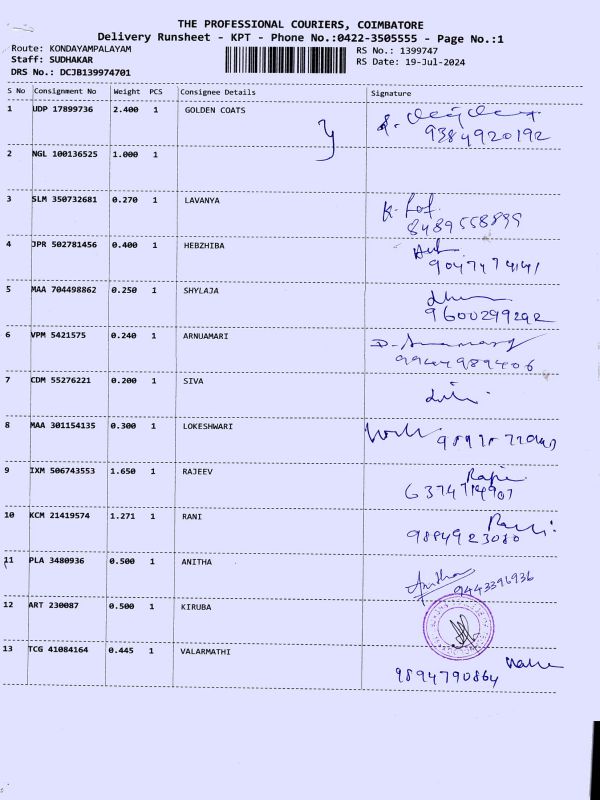 THE PROFESSIONAL COURIERS, COIMBATORE
Delivery Runsheet - KPT - Phone No.:0422-3505555 - Page No.:1
Route: KONDAYAMPALAYAM RS No.: 1399747
Staff: SUDHAKAR RS Date: 19-Jul-2024
DRS No.: DCJB139974701
S No Consignment No Weight PCS Consignee Details Signature
1 UDP 17899736 2.400 1 GOLDEN COATS
9384920192
2 NGL 100136525 1.000 1
3 SLM 350732681 0.270 1 LAVANYA
8489558899
4 JPR 502781456 0.400 1 HEBZHIBA
5 MAA 704498862 0.250 1 SHYLAJA
9600299292
6 VPM 5421575 0.240 1 ARNUAMARI
9944989406
7 CDM 55276221 0.200 1 SIVA
8 MAA 301154135 0.300 1 LOKESHWARI
9 IXM 506743553 1.650 1 RAJEEV
6374714907
10 KCM 21419574 1.271 1 RANI
9894923080
11 PLA 3480936 0.500 1 ANITHA
Anitha
9443396936
12 ART 230087 0.500 1 KIRUBA
13 TCG 41084164 0.445 1 VALARMATHI
9894790864